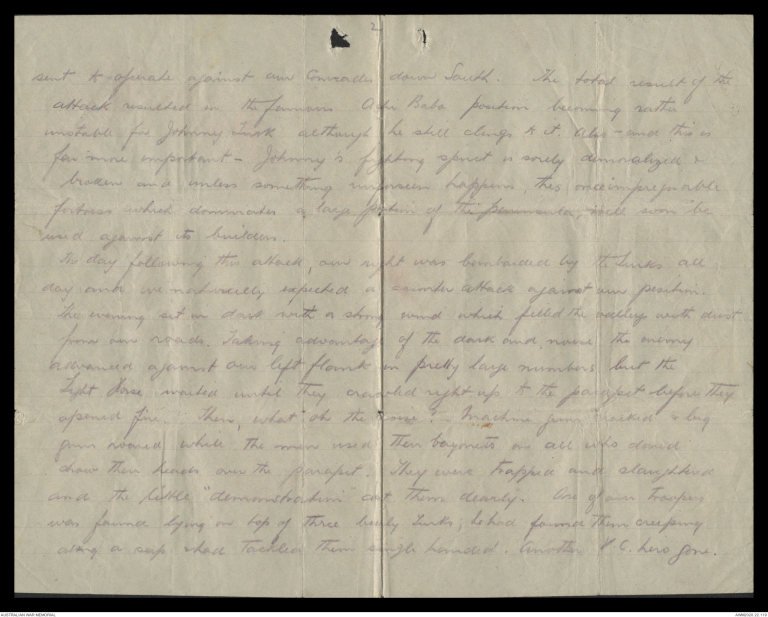 2
sent to operate against our Comrades down South. The total result of the
attack resulted in the famous Achi Baba position becoming rather
unstable for Johnny Turk although he still clings to it. Also - and this is
far more important - Johnny's fighting spirit is sorely demoralized &
broken and unless something unforseen happens, this once impregnable
fortress which dominates a large portion of the peninsula, will soon be
used against its builders.
The day following this attack, our right was bombarded by the Turks all
day and we naturally expected a counter attack against our position.
The evening set in dark with a strong wind which filled the valleys with dust
from our roads. Taking advantage of the dark and noise the enemy
advanced against our left flank in pretty large numbers but the
Light Horse waited until they crawled right up to the parapet before they
opened fire. Then, what oh the noise! Machine guns cracked & big
guns roared while the men used their bayonets on all who dared
show their heads over the parapet. They were trapped and slaughtered
and the little "demonstration" cost them dearly. One of our troopers
was found lying on top of three burly Turks; he had found them creeping
along a sap & had tackled them single handed. Another V.C. hero gone.
AUSTRALIAN WAR MEMORIAL